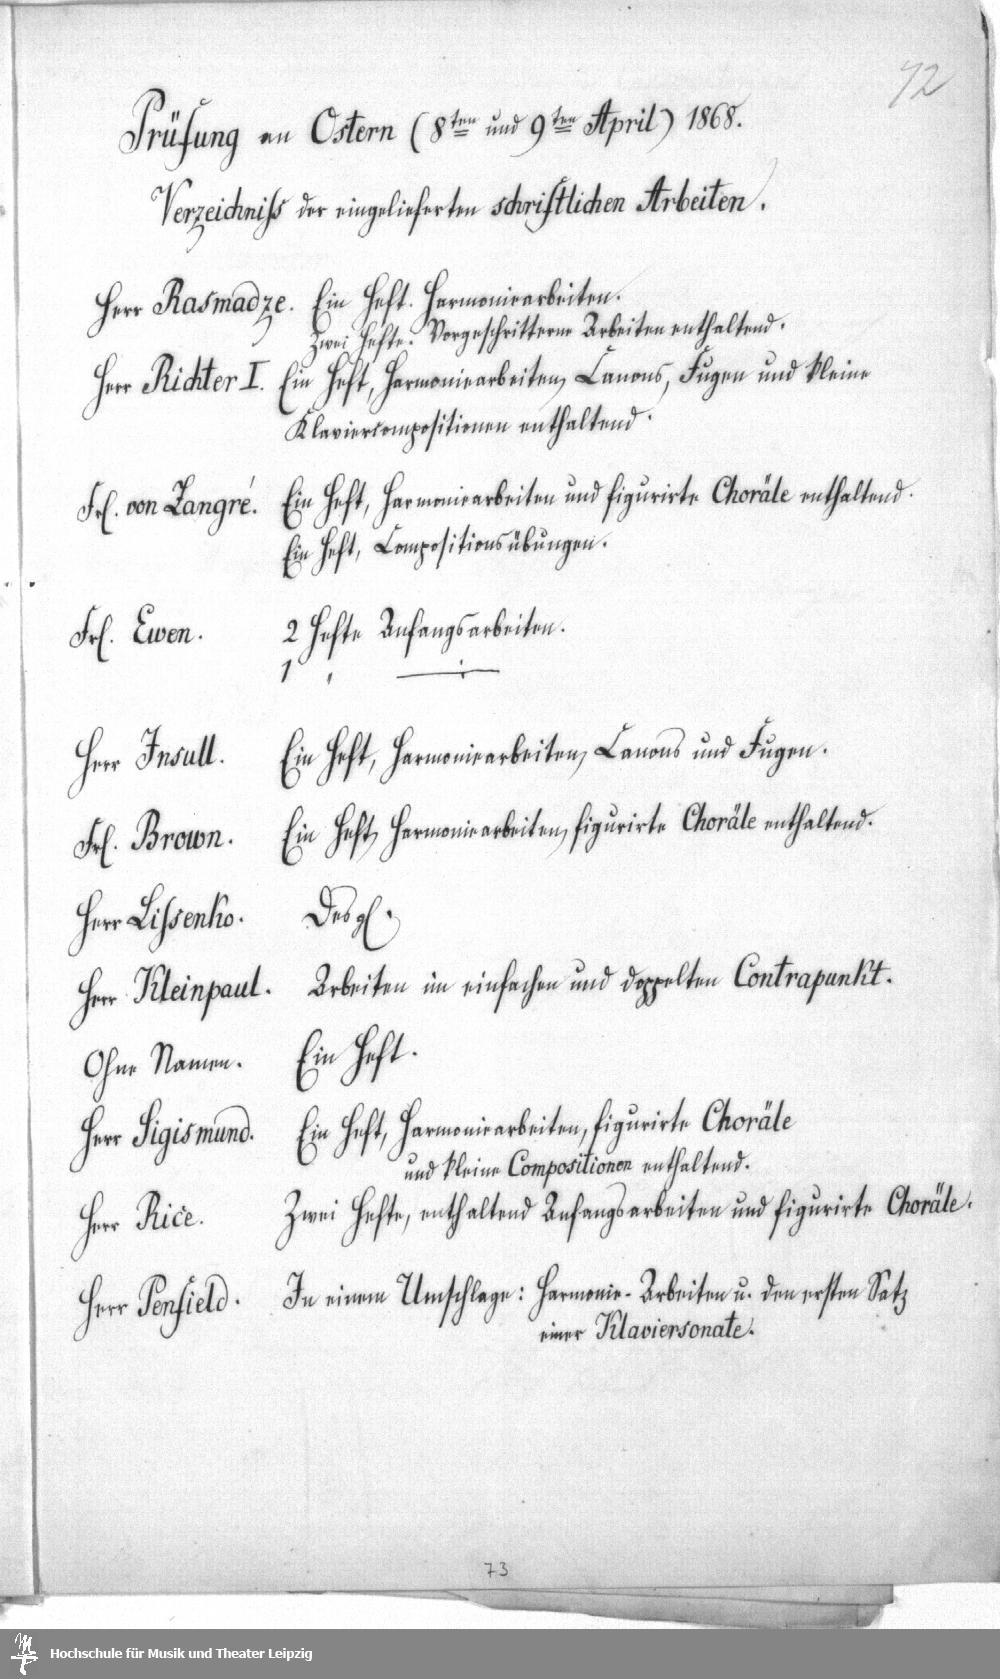 72
Prüfung an Ostern (8ten und 9ten April) 1868.
Verzeichniss der eingelieferten schriftlichen Arbeiten.
Herr Rasmadze. Ein Heft. Harmoniearbeiten.
Zwei Hefte. Vorgeschrittene Arbeiten enthaltend.
Herr Richter I. Ein Heft, Harmoniearbeiten, Canons, Fugen und kleine
Klaviercompositionen enthaltend.
Frl. von Zangré. Ein Heft, Harmoniearbeiten und figurirte Choräle enthaltend.
Ein Heft, Compositionsübungen.
Frl. Ewen. 2 Hefte Anfangsarbeiten.
1 " —"—
Herr Insull. Ein Heft, Harmoniearbeiten, Canons und Fugen.
Frl. Brown. Ein Heft, Harmoniearbeiten, figurirte Choräle enthaltend.
Herr Lissenko. Desgl.
Herr Kleinpaul. Arbeiten im einfachen und doppelten Contrapunkt.
Ohne Namen. Ein Heft.
Herr Sigismund. Ein Heft, Harmoniearbeiten, figurirte Choräle
und kleine Compositionen enthaltend.
Herr Rice. Zwei Hefte, enthaltend Anfangsarbeiten und figurirte Choräle.
Herr Penfield. In einem Umschlage: Harmonie-Arbeiten u. den ersten Satz
einer Klaviersonate.
73
Hochschule für Musik und Theater Leipzig